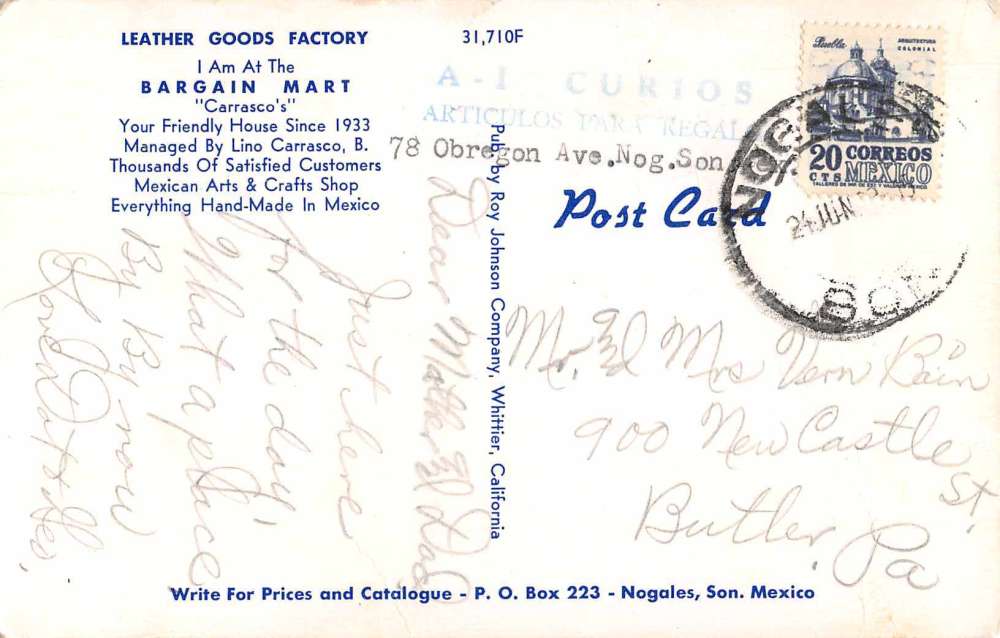 LEATHER GOODS FACTORY
I Am At The
BARGAIN MART
"Carrasco's"
Your Friendly House Since 1933
Managed By Lino Carrasco, B.
Thousands Of Satisfied Customers
Mexican Arts & Crafts Shop
Everything Hand-Made In Mexico
31,710F
A-I CURIOS
ARTICULOS PARA REGAL
78 Obregon Ave.Nog.Son
Post Card
Puebla
ARQUITECTURA
COLONIAL
20 CORREOS
CTS MEXICO
NOGALES
24 JUN
SON
Pub. by Roy Johnson Company, Whittier, California
Dear Mother & Dad
Just here
for the day.
What a place
By By now
Love
Mr. & Mrs Vern Rain
900 New Castle
St.
Butler, Pa
Write For Prices and Catalogue - P. O. Box 223 - Nogales, Son. Mexico